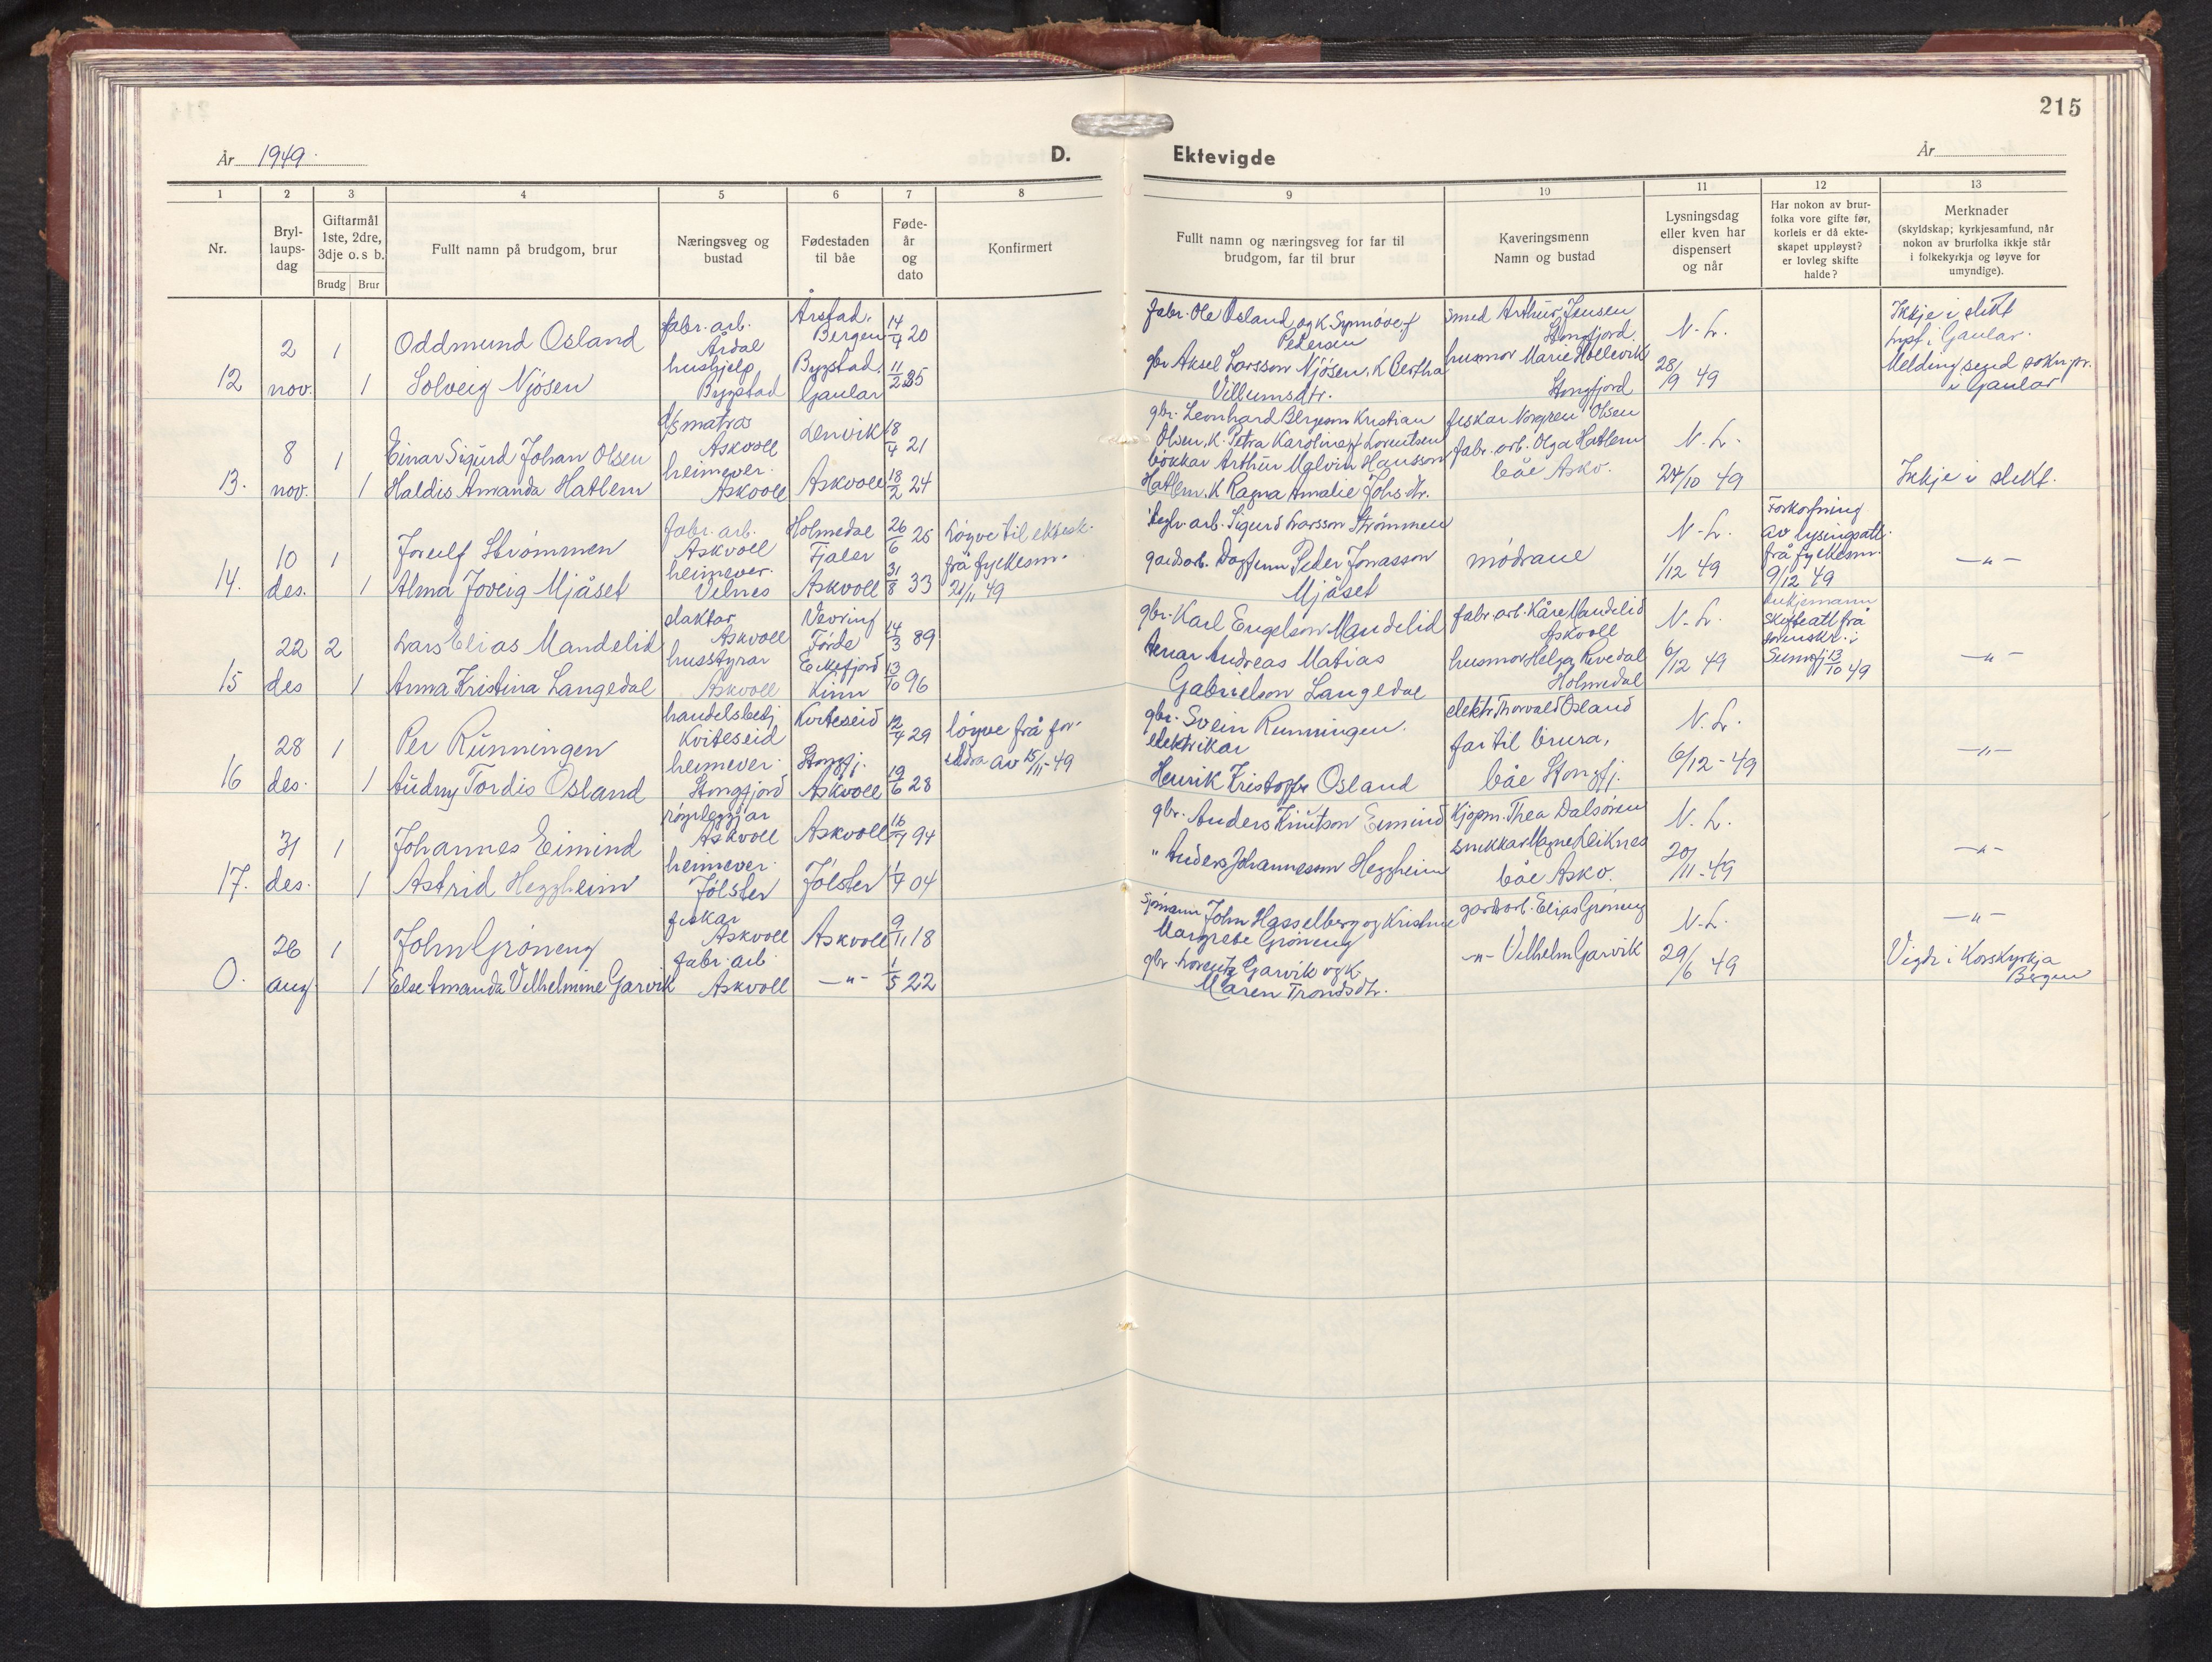 215
År 1949.
D.
Ektevigde
År
1 2 3 4 5 6 7 8 9 10 11 12 13
Nr.
Bryl-
laups-
dag
Giftarmål
1ste, 2dre,
3dje o. s b.
Brudg Brur
Fullt namn på brudgom, brur
Næringsveg og
bustad
Fødestaden
til båe
Føde-
år
og
dato
Konfirmert
Fullt namn og næringsveg for far til
brudgom, far til brur
Kaveringsmenn
Namn og bustad
Lysningsdag
eller kven har
dispensert
og når
Har nokon av brur-
folka vore gifte før,
korleis er då ekte-
skapet uppløyst?
er lovleg skifte
halde?
Merknader
(skyldskap; kyrkjesamfund, når
nokon av brurfolka ikkje står
i folkekyrkja og løyve for
umyndige).
12
2
nov.
1
1
Oddmund Osland
Solveig Njøsen
fabr. arb.
Årdal
hushjelp
Bygstad
Årstad,
Bergen
Bygstad,
Gaular
20
11/2 25
fabr. Ole Osland og k. Synnøve f.
Pedersen
gbr. Aksel Larsson Njøsen, k. Bertha
Villumsdtr.
smed Arthur Jensen
Stongfjord.
husmor Marie Hellevik
Stongfjord
N. L.
28/9 49
Ikkje i slekt
Lyst i Gaular.
Melding send sokn.pr.
i Gaular
13.
8
nov.
1
1
Einar Sigurd Johan Olsen
Haldis Amanda Hatlem
d/s matros
Askvoll
heimever.
Askvoll
Lenvik
Askvoll
18/4 21
18/2 24
gbr. Leonhard Kristian
Olsen, k. Petra Karoline f. Lorentsen
bokkar Arthur Malvin Hansson
Hatlem, k. Ragna Amalie Johs.dtr.
fiskar Olsen
fabr. arb. Olga Hatlem
båe Askv.
N. L.
24/10 49
Ikkje i slekt.
14.
10
des.
1
1
Joreulf Strømmen
Alma Joveig Mjåset
fabr. arb.
Askvoll
heimever.
Velnes
Holmedal
Fjaler
Askvoll
26/6 25
31/8 33
Løyve til ektesk.
frå fylkesm.
21/11 49
arb. Sigurd Larsson Strømmen
gardsarb. Dagfinn Peder Jonasson
Mjåset
mødrane
N. L.
1/12 49
Forkortning
av lysingsatt.
frå fylkesm.
9/12 49
— " —
15
22
des
2
1
Lars Elias Mandelid
Anna Kristina Langedal
slaktar
Askvoll
husstyrar
Askvoll
Vevring
Førde
Eikefjord
Kinn
14/3 89
13/10 96
gbr. Karl Engelson Mandelid
Andreas Matias
Gabrielson Langedal
fabr. arb. Kåre Mandelid
Askvoll
husmor Helga Revedal
Holmedal
N. L.
6/12 49
enkjemann
skifteatt. frå
sorenskr. i
Sunnfj. 13/10 49
— " —
16
28
des.
1
1
Per Runningen
Audny Tordis Osland
handelsbetj.
Kviteseid
heimever.
Stongfjord
Kviteseid
Stongfj.
Askvoll
12/4 29
19/6 28
løyve frå for-
eldra av 15/11-49
gbr. Svein Runningen.
elektrikar
Henrik Kristoffer Osland
elektr. Thorvald Osland
far til brura,
båe Stongfj.
N. L.
6/12-49
— " —
17.
31
des.
1
1
Johannes Eimind
Astrid Heggheim
røyrleggjar
Askvoll
heimever.
Jølster
Askvoll
Jølster
94
04
gbr. Anders Knutson Eimind
" Anders Johannesson Heggheim
Kjøpm. Thea Dalsøren
snikkar Magne Leiknes
båe Askv.
N. L.
20/11-49
— " —
0.
26
aug
1
1
John Grøneng
Else Amanda Vilhelmine Garvik
fiskar
Askvoll
fabr. arb.
Askvoll
Askvoll
— " —
9/11 18
1/5 22
sjømann John Hasselberg og Kristine
Margrete Grøneng
gbr. Lorentz Garvik og k.
Maren Trondsdtr.
gardsarb. Elias Grøneng
— " — Vilhelm Garvik
N. L.
29/6 49
— " —
Vigde i Korskyrkja
Bergen